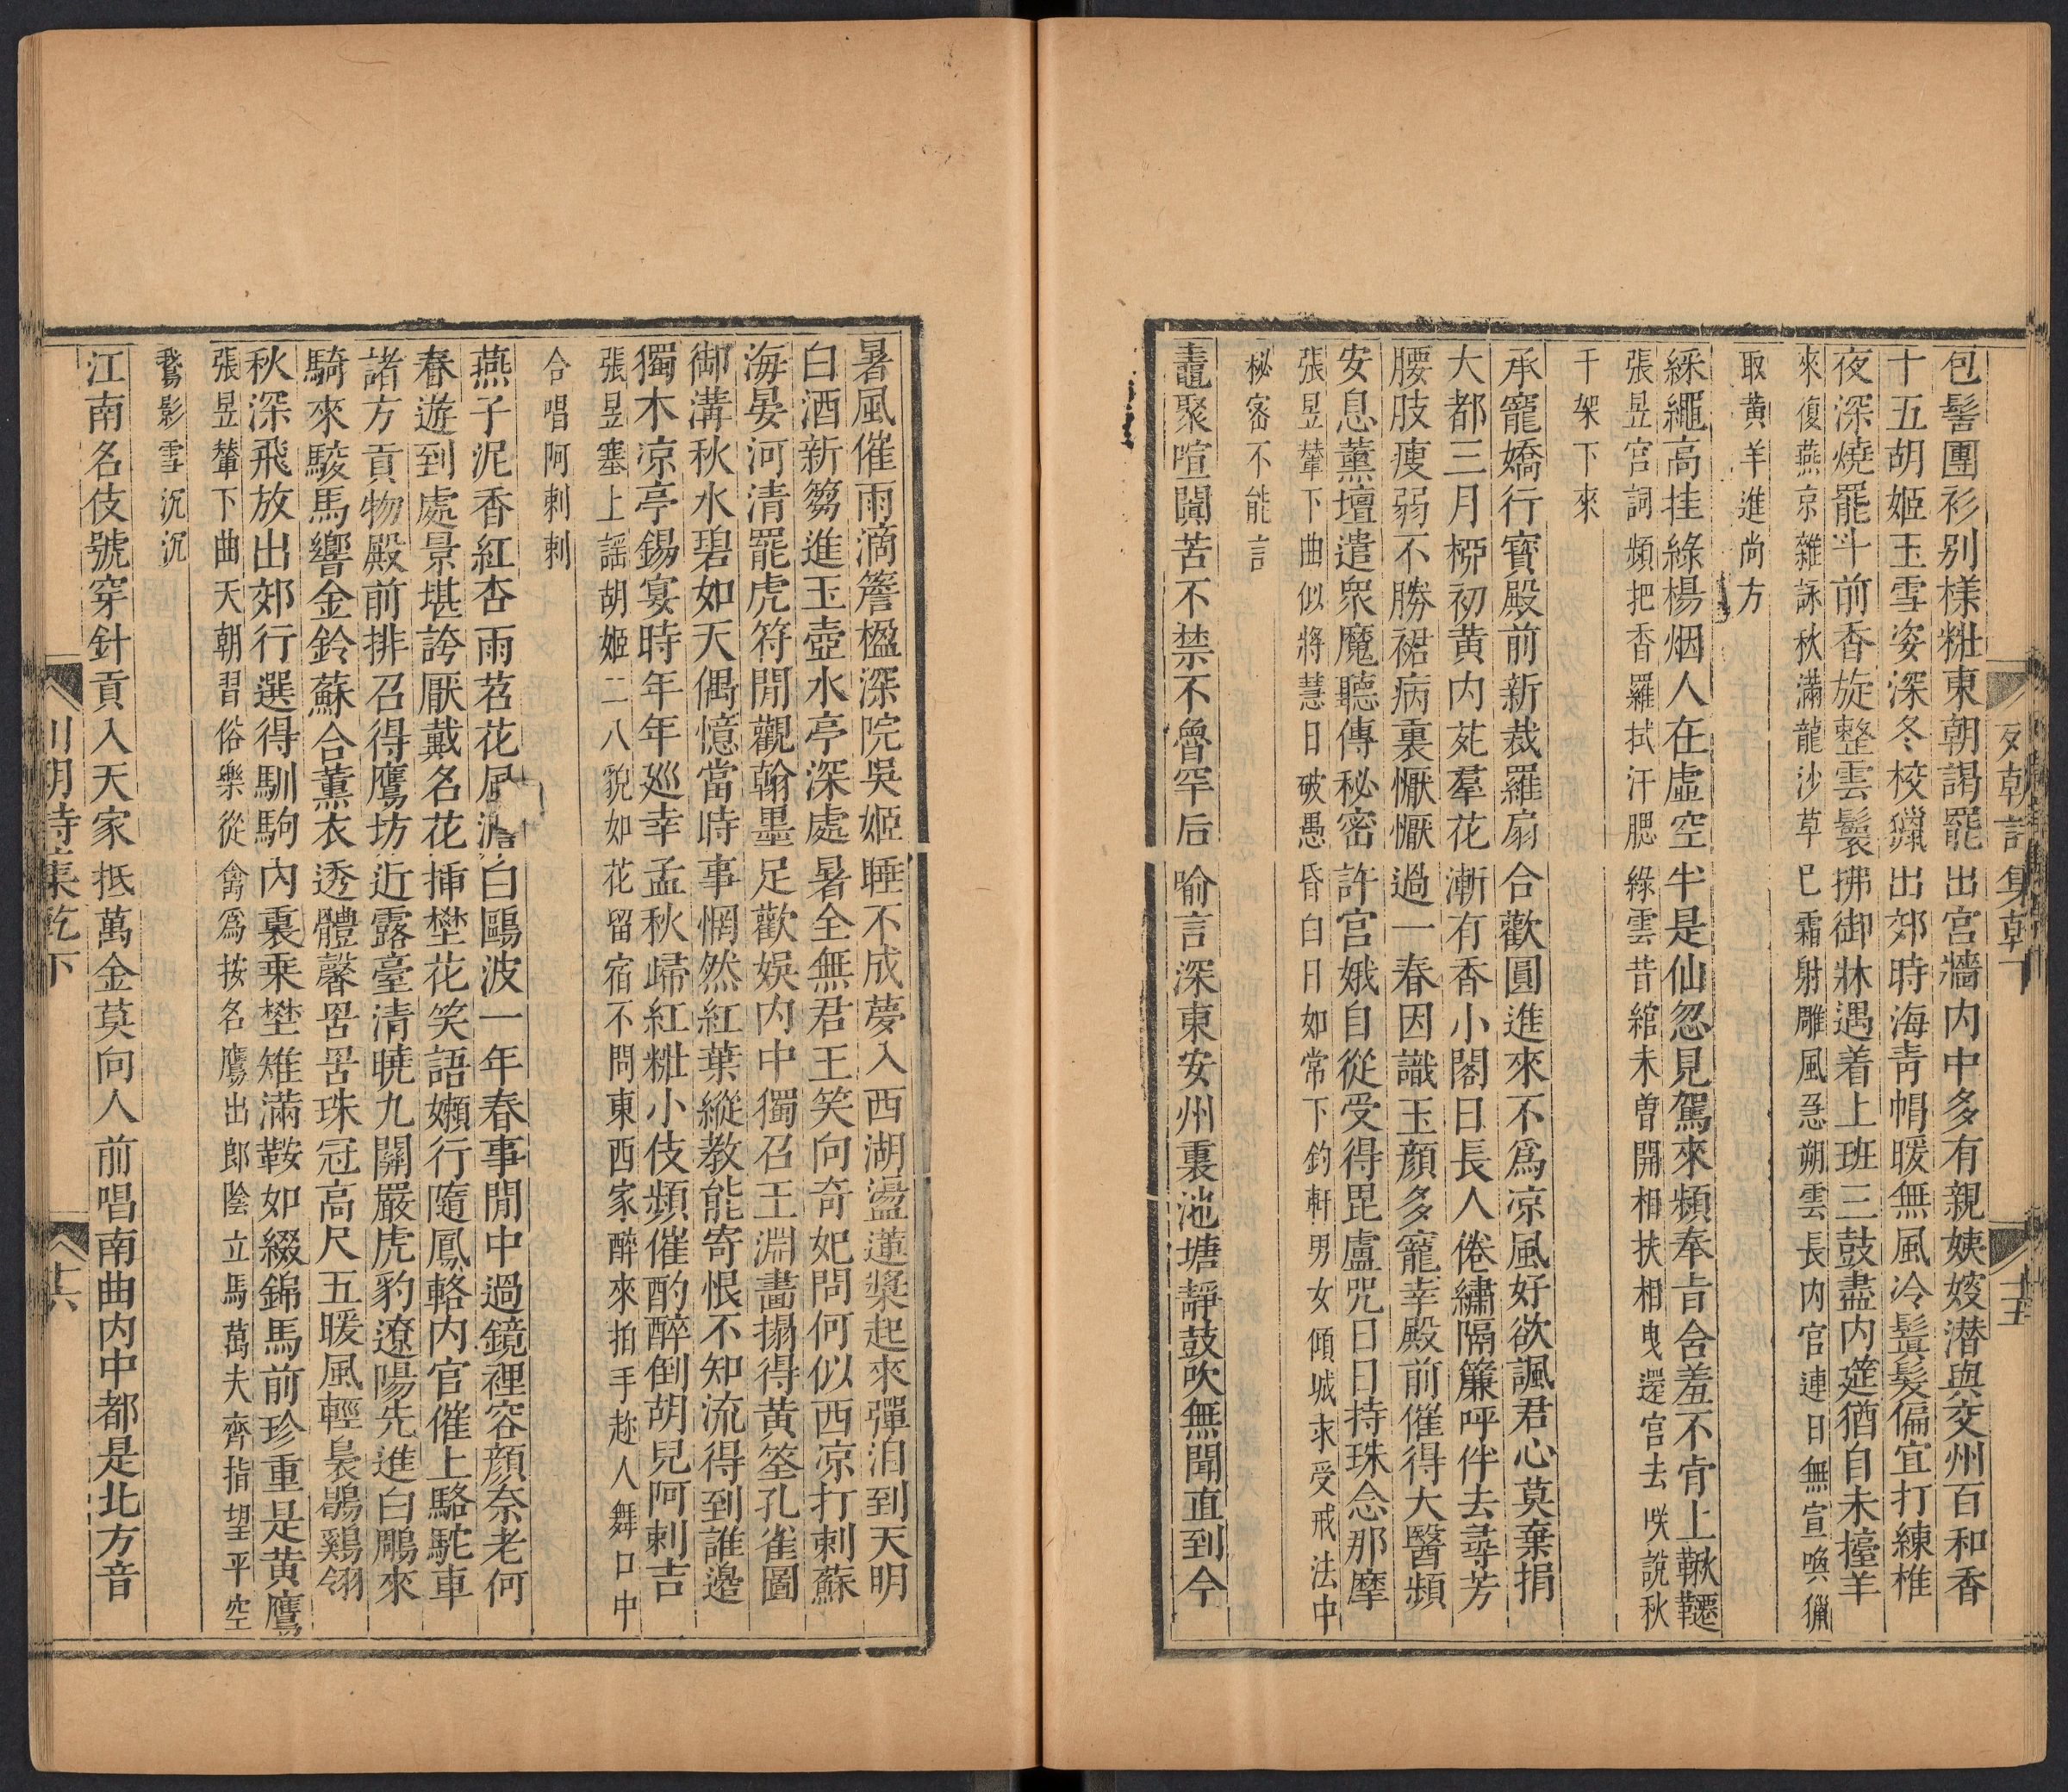 包髻團衫别様粧東朝謁罷出宮牆内中多有親姨姣潜與交州百和香
十五胡姬玉雪姿深冬校獵出郊時海青帽暖無風冷鬒髮偏宜打練椎
夜深燒罷斗前香旋整雲鬟拂御牀遇着上班三鼓盡内筵猶自未擡羊
來復燕京雜詠秋滿龍沙草已霜射雕風急朔雲長内官連日無宣喚獵
取黄羊進尚方
綵繩高挂綠楊烟人在虛空半是仙忽見駕來頻奉㫖含羞不肯上鞦韆
張昱宮詞頻把香羅拭汗腮綠雲昔綰未曽開相扶相曳還宫去咲說秋
千架下來
承寵嬌行寳殿前新裁羅扇合歡圓進來不爲凉風好欲諷君心莫棄捐
大都三月栁初黄内苑羣花漸有香小閣日長人倦繡隔簾呼伴去尋芳
腰肢瘦弱不勝裙病裏懨懨過一春因識玉顔多寵幸殿前催得大醫頻
安息薰壇遣衆魔聽傳秘密許宫娥自從受得毘盧咒日日持珠念那摩
張昱輦下曲似將慧日破愚昏白日如常下釣軒男女傾城求受戒法中
秘宻不能言
鼃聚喧闐苦不禁不魯罕后喻言深東安州裏池塘靜鼓吹無聞直到今
列朝詩集乾下
十五
暑風催雨滴簷楹深院吳姬睡不成夢入西湖盪蓮槳起來彈泪到天明
白酒新篘進玉壺水亭深處暑全無君王笑向奇妃問何似西凉打剌蘇
海晏河清罷虎符閒觀翰墨足歡娛内中獨召王淵畫搨得黃筌孔雀圖
御溝秋水碧如天偶憶當時事惘然紅葉縱教能寄恨不知流得到誰邊
獨木凉亭錫宴時年年廵幸孟秋歸紅粧小伎頻催酌醉倒胡兒阿剌吉
張昱塞上謡胡姬二八貌如花留宿不問東西家醉來拍手趂人舞口中
合唱阿剌剌
燕子泥香紅杏雨苕花風澹白鷗波一年春事閒中過鏡裡容顔奈老何
春遊到處景堪誇厭戴名花揷埜花笑語嬾行隨鳳輅内官催上駱駝車
諸方貢物殿前排召得鷹坊近露臺清曉九關嚴虎豹遼陽先進白鵰來
騎來駿馬響金鈴蘇合薰衣透體馨罟罟珠冠高尺五暖風輕裊鶡鷄翎
秋深飛放出郊行選得馴駒内裏乘埜雉滿鞍如綴錦馬前珍重是黄鷹
張昱輦下曲天朝習俗樂從禽爲按名鷹出郎陰立馬萬夫齊指望平空
鵞影雪沉沉
江南名伎號穿針貢入天家抵萬金莫向人前唱南曲内中都是北方音
列朝詩集乾下
十六